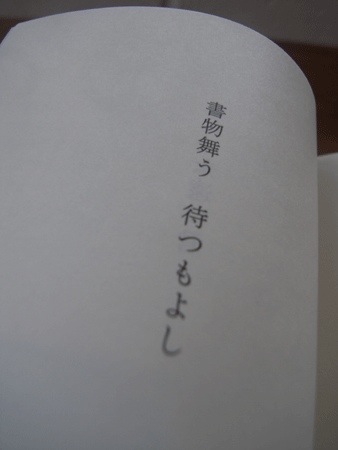 書物舞う　待つもよし